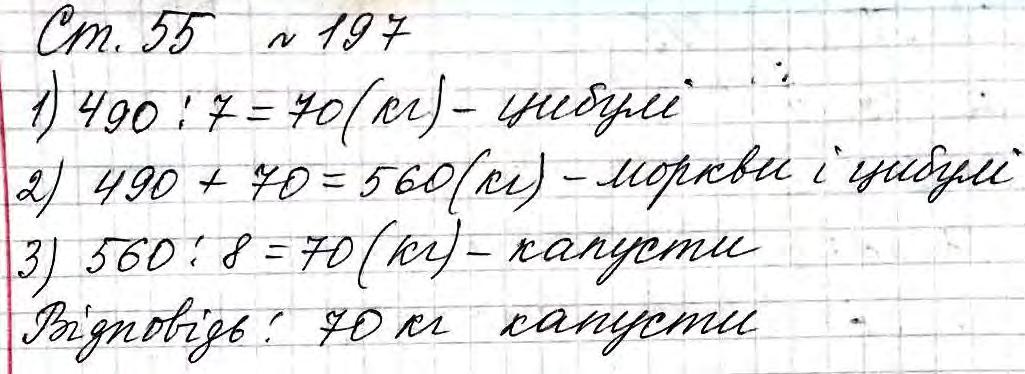 Ст. 55 № 197
1) 490 : 7 = 70 (кг) – цибулі
2) 490 + 70 = 560 (кг) – моркви і цибулі
3) 560 : 8 = 70 (кг) – капусти
Відповідь: 70 кг капусти